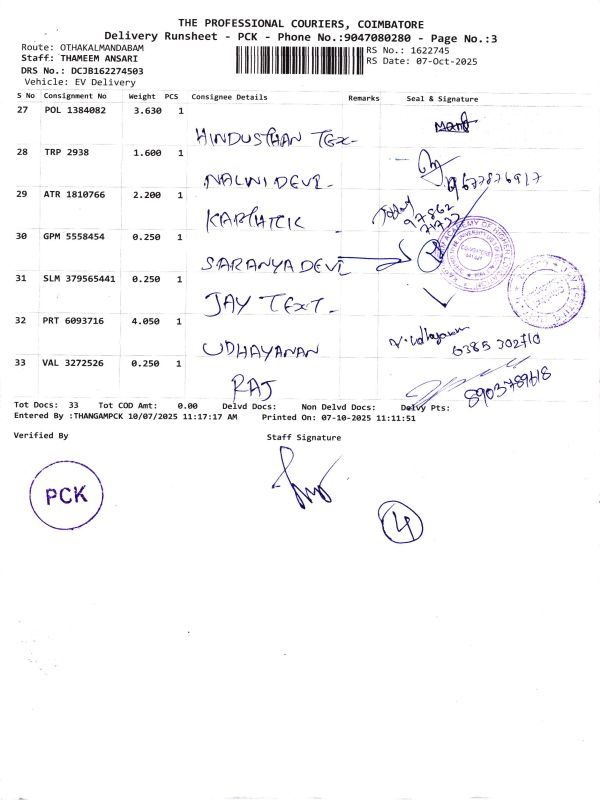 THE PROFESSIONAL COURIERS, COIMBATORE
Delivery Runsheet - PCK - Phone No.:9047080280 - Page No.:3
Route: OTHAKALMANDABAM
RS No.: 1622745
Staff: THAMEEM ANSARI
RS Date: 07-Oct-2025
DRS No.: DCJB162274503
Vehicle: EV Delivery
S No Consignment No Weight PCS Consignee Details Remarks Seal & Signature
27 POL 1384082 3.630 1
HINDUSTHAN TEX-
28 TRP 2938 1.600 1
NALINI DEVI-
9677876917
29 ATR 1810766 2.200 1
KARTHICK
97862
71732
30 GPM 5558454 0.250 1
SARANYA DEVI
31 SLM 379565441 0.250 1
JAY TEXT-
32 PRT 6093716 4.050 1
UDHAYANAN
V. Udhayanan
6385 302710
33 VAL 3272526 0.250 1
RAJ
8903789618
Tot Docs: 33 Tot COD Amt: 0.00 Delvd Docs: Non Delvd Docs: Delvy Pts:
Entered By :THANGAMPCK 10/07/2025 11:17:17 AM Printed On: 07-10-2025 11:11:51
Verified By
Staff Signature
PCK
4